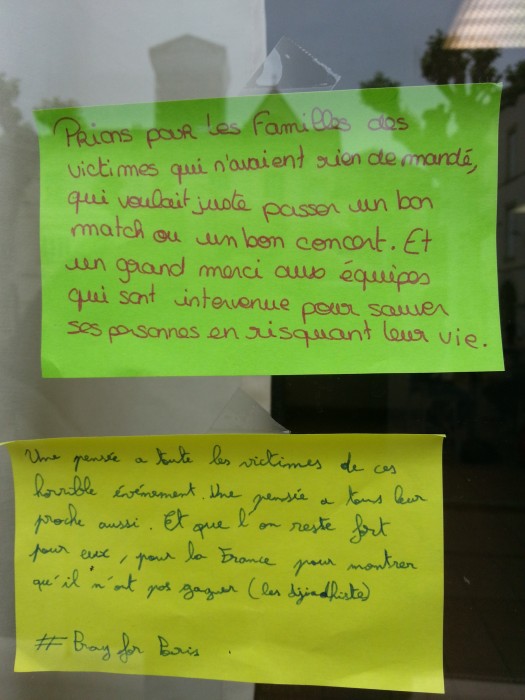 Prions pour les Familles des
victimes qui n'avaient rien de mandé,
qui voulait juste passer un bon
match ou un bon concert. Et
un grand merci aux équipes
qui sont intervenue pour sauver
ses personnes en risquant leur vie.
Une pensée a toute les victimes de ces
horrible événement. Une pensée a tous leur
proche aussi. Et que l'on reste fort
pour eux, pour la France pour montrer
qu'il n'ont pas gagner (les djiadhiste)
# Pray for Paris.